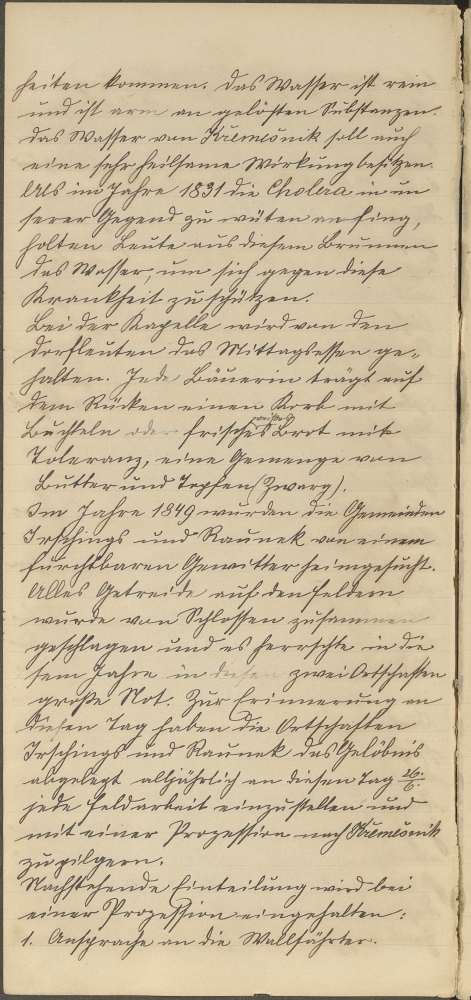 heiten kommen. Das Wasser ist rein
und ist arm an gelösten Substanzen.
Das Wasser von Křemešnik soll auch
eine sehr heilsame Wirkung besitzen.
Als im Jahre 1831 die Cholera in un
serer Gegend zu wüten anfing,
holten Leute aus diesem Brunnen
das Wasser, um sich gegen diese
Krankheit zu schützen.
Bei der Kapelle wird von den
Dorfleuten das Mittagsessen ge-
halten. Jede Bäuerin trägt auf
dem Rücken einen Korb mit
Buchteln oder frisches weißes Brot mit
Toleranz, eine Gemenge von
Butter und Topfen (Zwarg).
Im Jahre 1849 wurden die Gemeinden
Irschings und Raunek von einem
furchtbaren Gewitter heimgesucht.
Alles Getreide auf den Feldern
wurde von Schlossen zusammen
geschlagen und es herrschte in die
sem Jahre in diesen zwei Ortschaften
große Not. Zur Erinnerung an
diesen Tag haben die Ortschaften
Irschings und Raunek das Gelöbnis
abgelegt alljährlich an diesen Tag 26./6.
jede Feldarbeit einzustellen und
mit einer Prozession nach Křemešnik
zu pilgern.
Nachstehende Einteilung wird bei
einer Prozession eingehalten:
1. Ansprache an die Wallfährter.